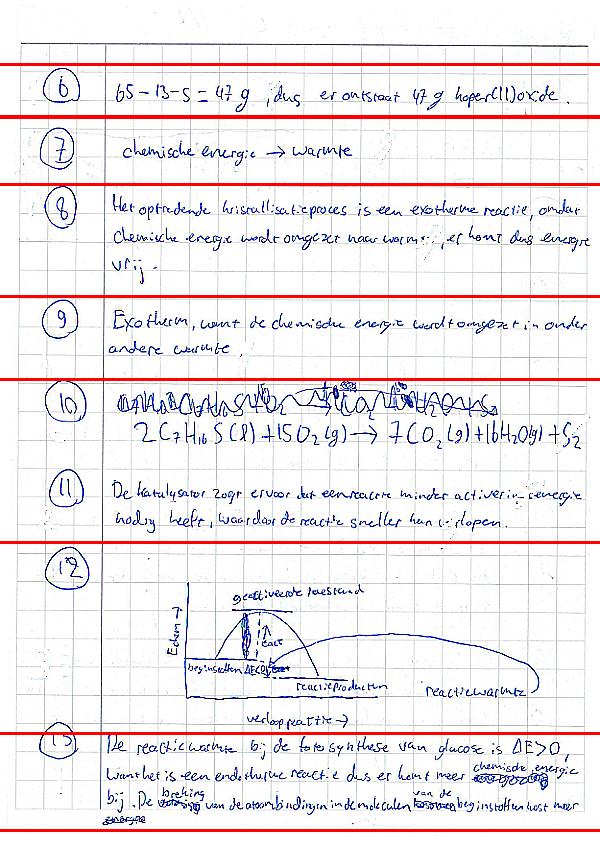 6 65 - 13 - 5 = 47 g , dus er ontstaat 47 g koper(II)oxide.
7 chemische energie → warmte
8 Het optredende kristallisatieproces is een exotherme reactie, omdat
chemische energie wordt omgezet naar warmte, er komt dus energie
vrij.
9 Exotherm, want de chemische energie wordt omgezet in onder
andere warmte.
10
2C7H16S(l) + 15O2(g) → 7CO2(g) + 16H2O(g) + S2
11 De katalysator zorgt ervoor dat een reactie minder activeringsenergie
nodig heeft, waardoor de reactie sneller kan verlopen.
12
geactiveerde toestand
Echem →
Eact
beginstoffen ΔE<0
reactieproducten reactiewarmte
verloop reactie →
13 De reactiewarmte bij de fotosynthese van glucose is ΔE>0,
want het is een endotherme reactie dus er komt meer chemische energie
bij. De breking van de atoombindingen in de moleculen van de beginstoffen kost meer
energie